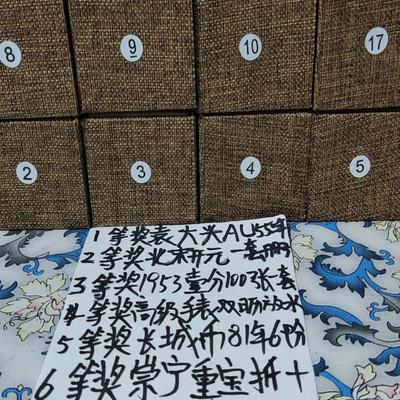 8 9 10 17
2 3 4 5
1等奖袁大头AU55年
2等奖北宋开元 套册
3等奖1953壹分100张一套
4等奖高级手表双日历防水
5等奖长城币81年6份
6等奖崇宁重宝折十